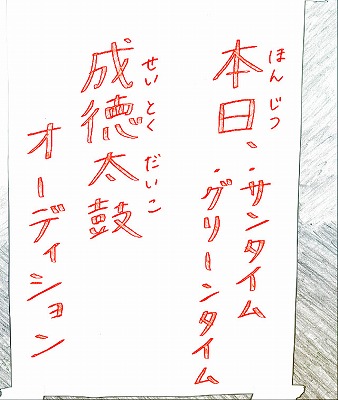 ほんじつ
本日、・サンタイム
・グリーンタイム
せいとくだいこ
成徳太鼓
オーディション